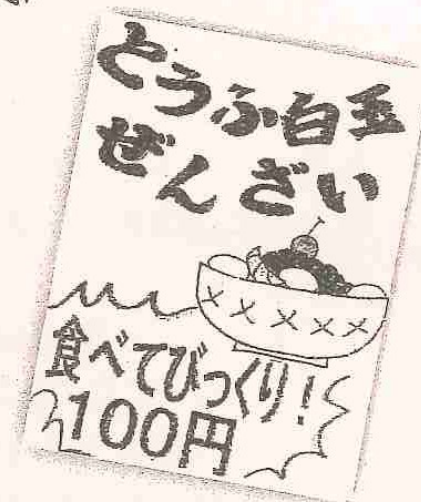 とうふ白玉
ぜんざい
食べてびっくり！
100円